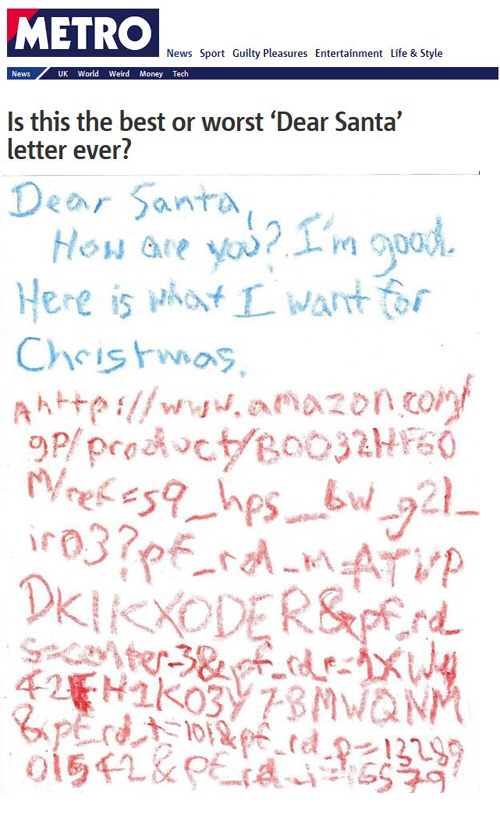 METRO
News Sport Guilty Pleasures Entertainment Life & Style
News UK World Weird Money Tech
Is this the best or worst ‘Dear Santa’
letter ever?
Dear Santa,
How are you? I'm good.
Here is what I want for
Christmas.
A http://www.amazon.com/
gp/product/B0032HF60
M/ref=s9_hps_bw_g21_
ir03?pf_rd_m=ATVP
DKIKX0DER&pf_rd_
s=center-3&pf_rd_r=1XWY
42FH1K03Y78MWQNM
&pf_rd_t=101&pf_rd_p=13289
01542&pf_rd_i=16579